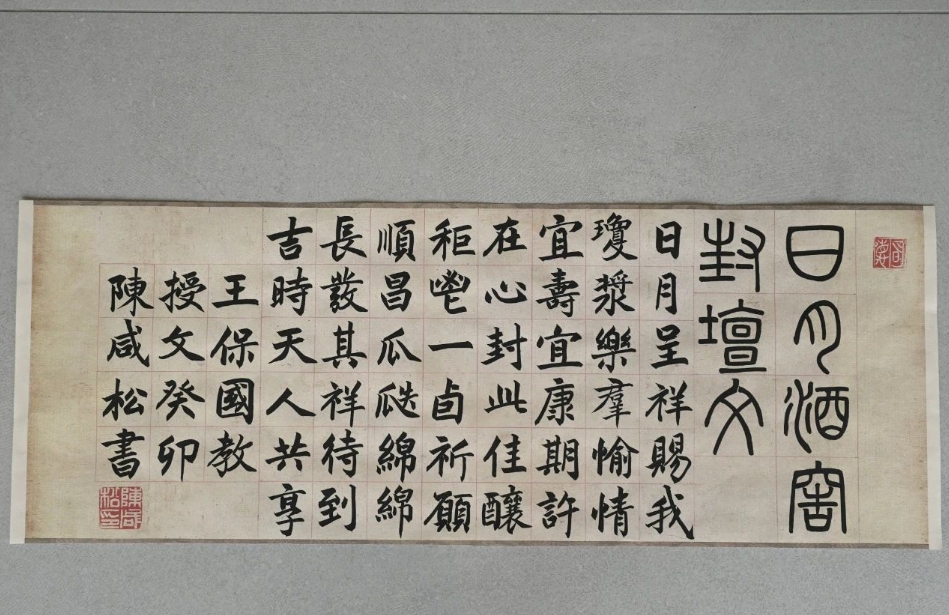 日月酒窖
封壇文
日月呈祥賜我
瓊漿樂羣愉情
宜壽宜康期許
在心封此佳釀
秬鬯一卣祈願
順昌瓜瓞綿綿
長發其祥待到
吉時天人共享
王保國教
授文癸卯
陳咸松書
陳咸松印